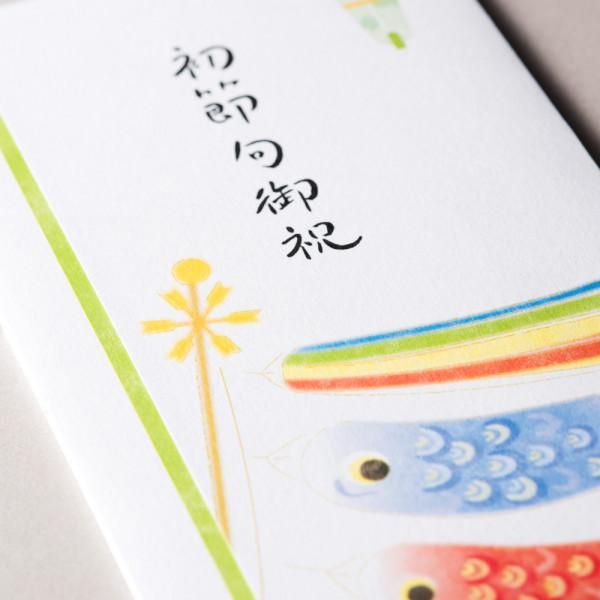 初節句御祝